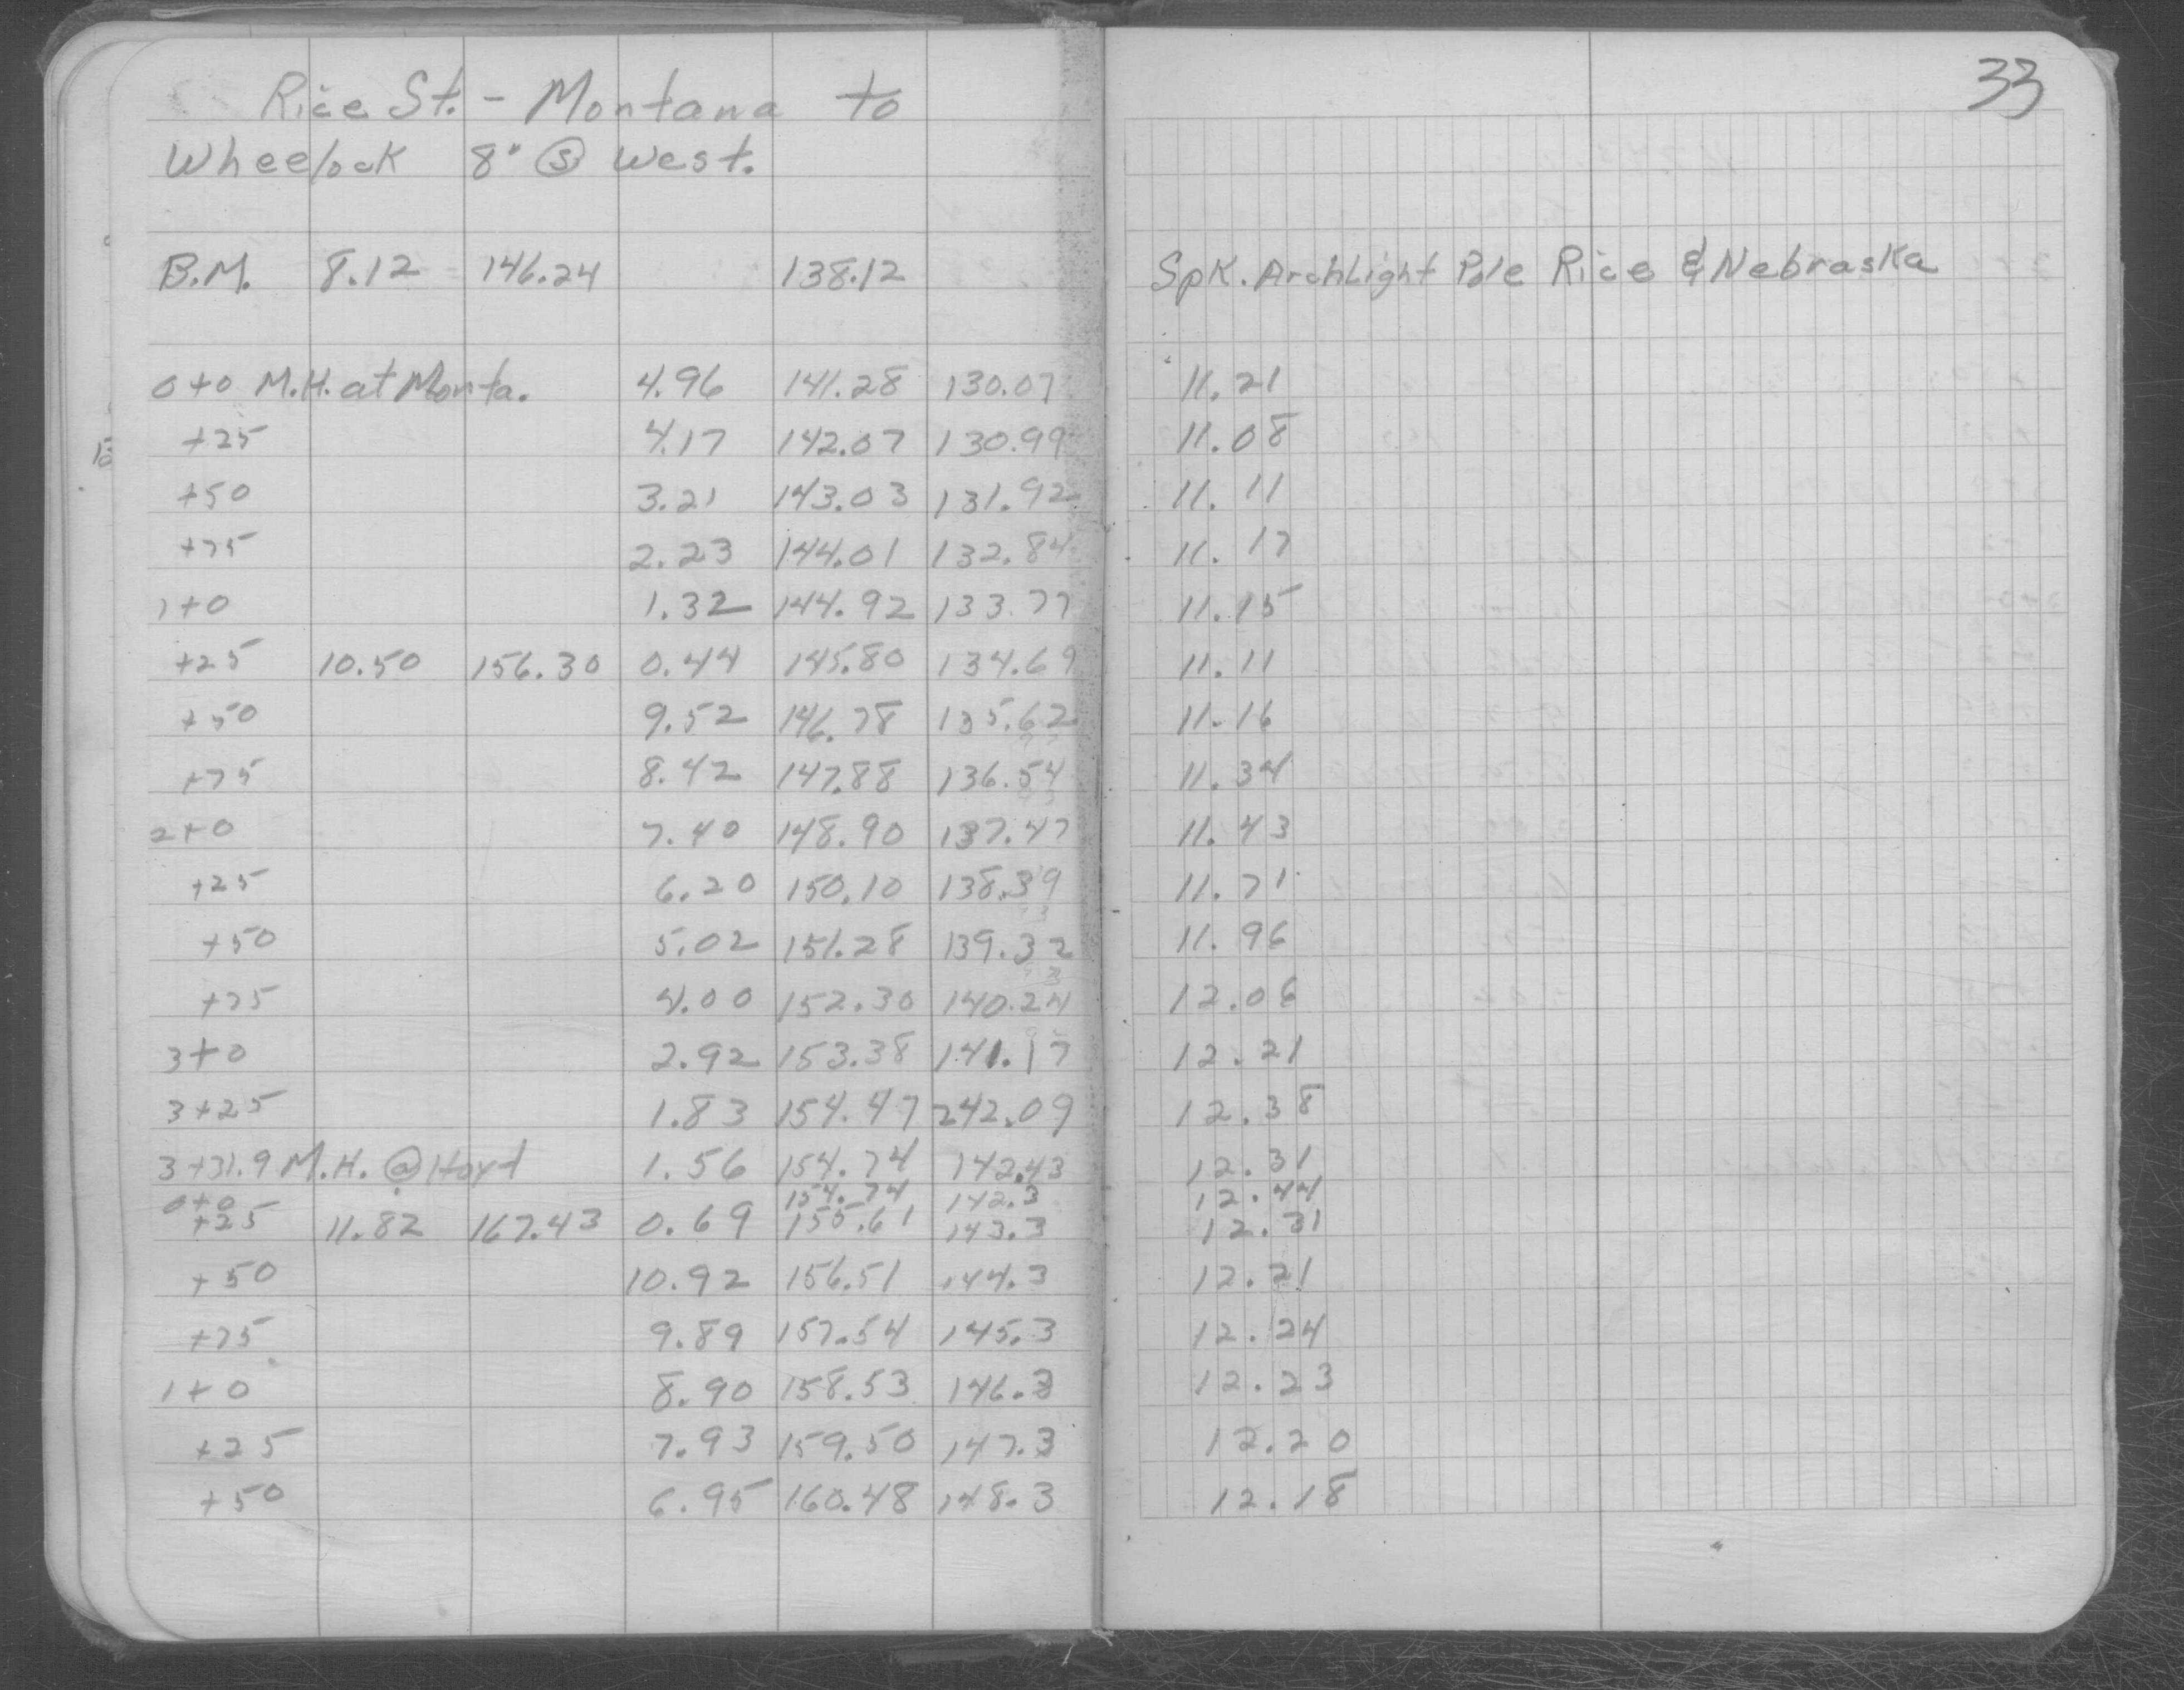 33
Rice St. - Montana to
Wheelock 8" Ⓢ West.
B.M. 8.12 146.24 138.12 Spk. ArchLight Pole Rice & Nebraska
0+0 M.H. at Monta. 4.96 141.28 130.07 11.21
+25 4.17 142.07 130.99 11.08
+50 3.21 143.03 131.92 11.11
+75 2.23 144.01 132.84 11.17
1+0 1.32 144.92 133.77 11.15
+25 10.50 156.30 0.44 145.80 134.69 11.11
+50 9.52 146.78 135.62 11.16
+75 8.42 147.88 136.54 11.34
2+0 7.40 148.90 137.47 11.43
+25 6.20 150.10 138.39 11.71
+50 5.02 151.28 139.32 11.96
+75 4.00 152.30 140.24 12.06
3+0 2.92 153.38 141.17 12.21
3+25 1.83 154.47 242.09 12.38
3+31.9 M.H. @ Hoyt 1.56 154.74 142.43 12.31
0+0 154.74 142.3 12.44
+25 11.82 167.43 0.69 155.61 143.3 12.31
+50 10.92 156.51 144.3 12.21
+75 9.89 157.54 145.3 12.24
1+0 8.90 158.53 146.3 12.23
+25 7.93 159.50 147.3 12.20
+50 6.95 160.48 148.3 12.18